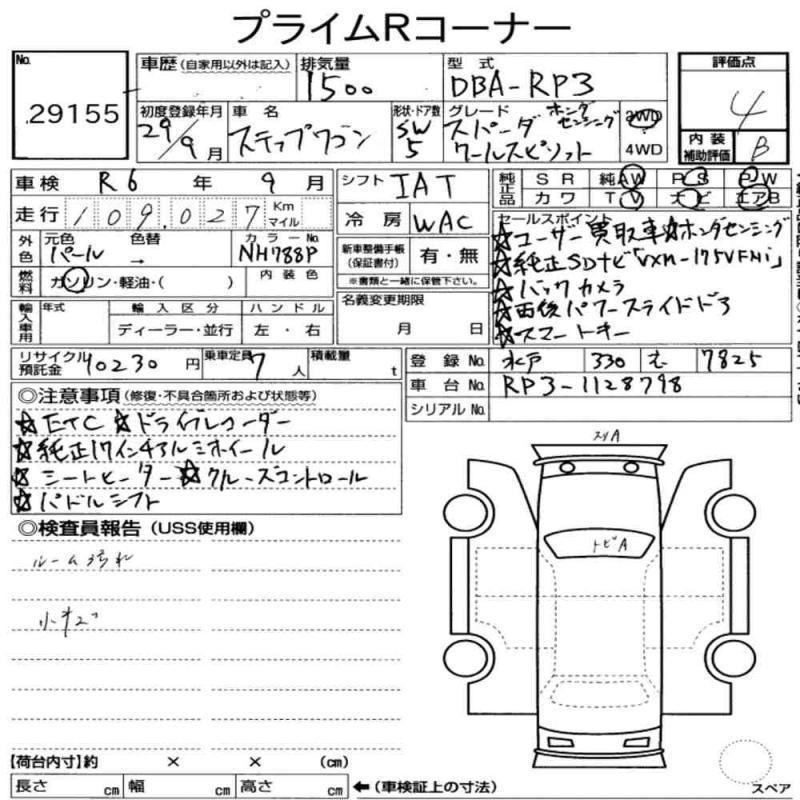 プライムRコーナー
No. 29155
車歴 (自家用以外は記入)
排気量 1500
型式 DBA-RP3
評価点 4
初度登録年月 29年 9月
車名 ステップワゴン
形状・ドア数 SW 5
グレード スパーダ ホンダセンシング
クールスピリット
2WD
4WD
内装補助評価 B
車検 R6年 9月
シフト IAT
純正品 SR 純AW PS PW
カワ TV ナビ エアB
走行 109,027 Km マイル
冷房 WAC
外色 元色 パール 色替 → カラーNo. NH788P
新車整備手帳 (保証書付) 有・無
※書類と一緒に保管下さい。
燃料 ガソリン・軽油・( ) 内装色
セールスポイント
☆ユーザー買取車☆ホンダセンシング
☆純正SDナビ「VXM-175VFNi」
☆バックカメラ
☆両後パワースライドドア
☆スマートキー
輸入車用 年式 輸入区分 ハンドル
ディーラー・並行 左・右
名義変更期限
月 日
リサイクル預託金 40230円 乗車定員 7人 積載量 t
登録No. 水戸 330 む 7825
車台No. RP3-1128798
シリアルNo.
◎注意事項 (修復・不具合箇所および状態等)
☆ETC ☆ドライブレコーダー
☆純正17インチアルミホイール
☆シートヒーター☆クルーズコントロール
☆パドルシフト
◎検査員報告 (USS使用欄)
ルーム汚れ
小キズ
スリA
トビA
【荷台内寸】約 × × (cm)
長さ cm 幅 cm 高さ cm ←(車検証上の寸法)
スペア